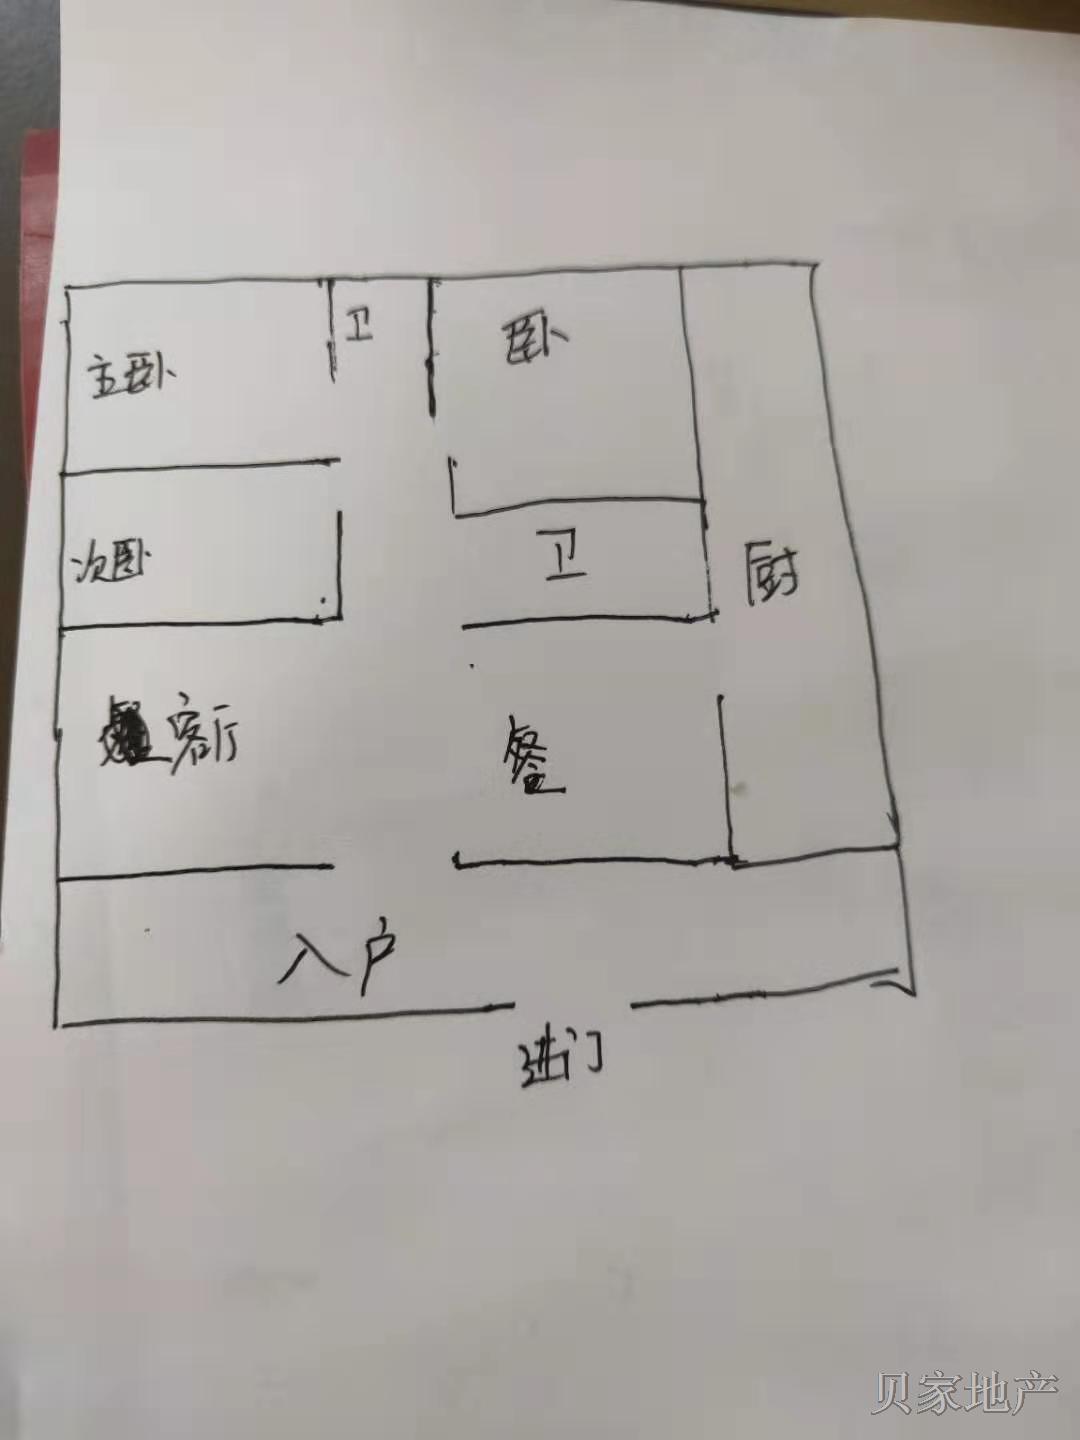 卫
卧
主卧
卫
次卧
厨
客厅
餐
入户
进门
贝家地产